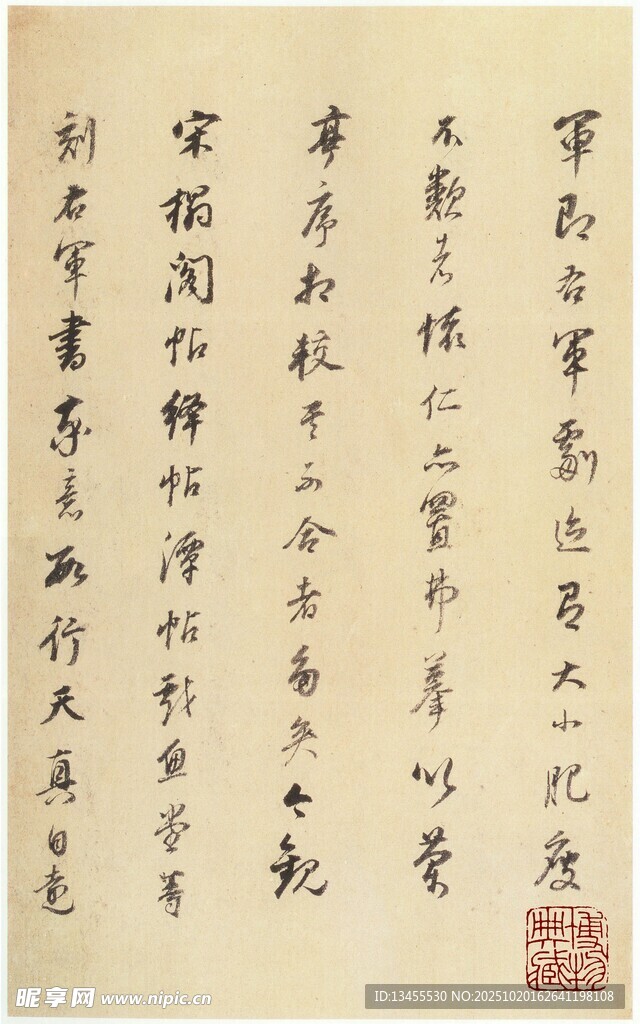 軍即右軍劇迹有大小肥瘦
不類者懷仁亦置弗摹以蘭
亭序相較其不合者多矣今觀
宋榻閣帖絳帖潭帖戲魚堂等
刻右軍書率意數行天真自遠
博物
典藏
昵享网 www.nipic.cn
ID:13455530 NO:20251020162641198108